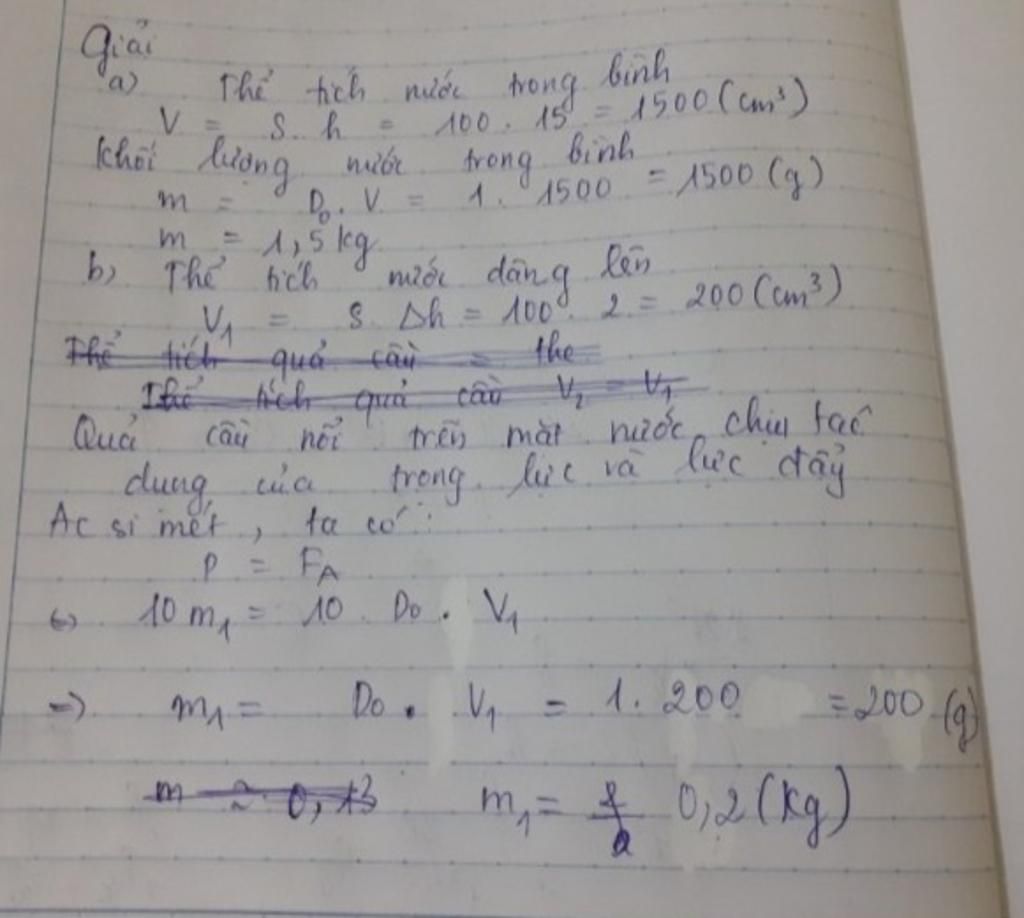 Giải
a) Thể tích nước trong bình
V = S. h = 100 . 15 = 1500 (cm³)
Khối lượng nước trong bình
m = D₀. V = 1. 1500 = 1500 (g)
m = 1,5 kg
b) Thể tích nước dâng lên
V₁ = S. Δh = 100 . 2 = 200 (cm³)
Thể tích quả cầu = the
Thể tích quả cầu V₂ = V₁
Quả cầu nổi trên mặt nước chịu tác
dụng của trọng lực và lực đẩy
Ac si mét, ta có :
P = FA
10 m₁ = 10 . D₀ . V₁
=> m₁ = D₀ . V₁ = 1. 200 = 200 (g)
m ≈ 0,13 m₁ = 0,2 (kg)